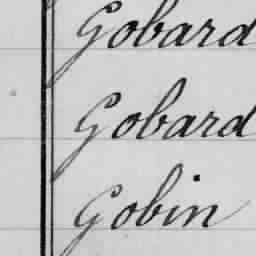 Gobard
Gobard
Gobin